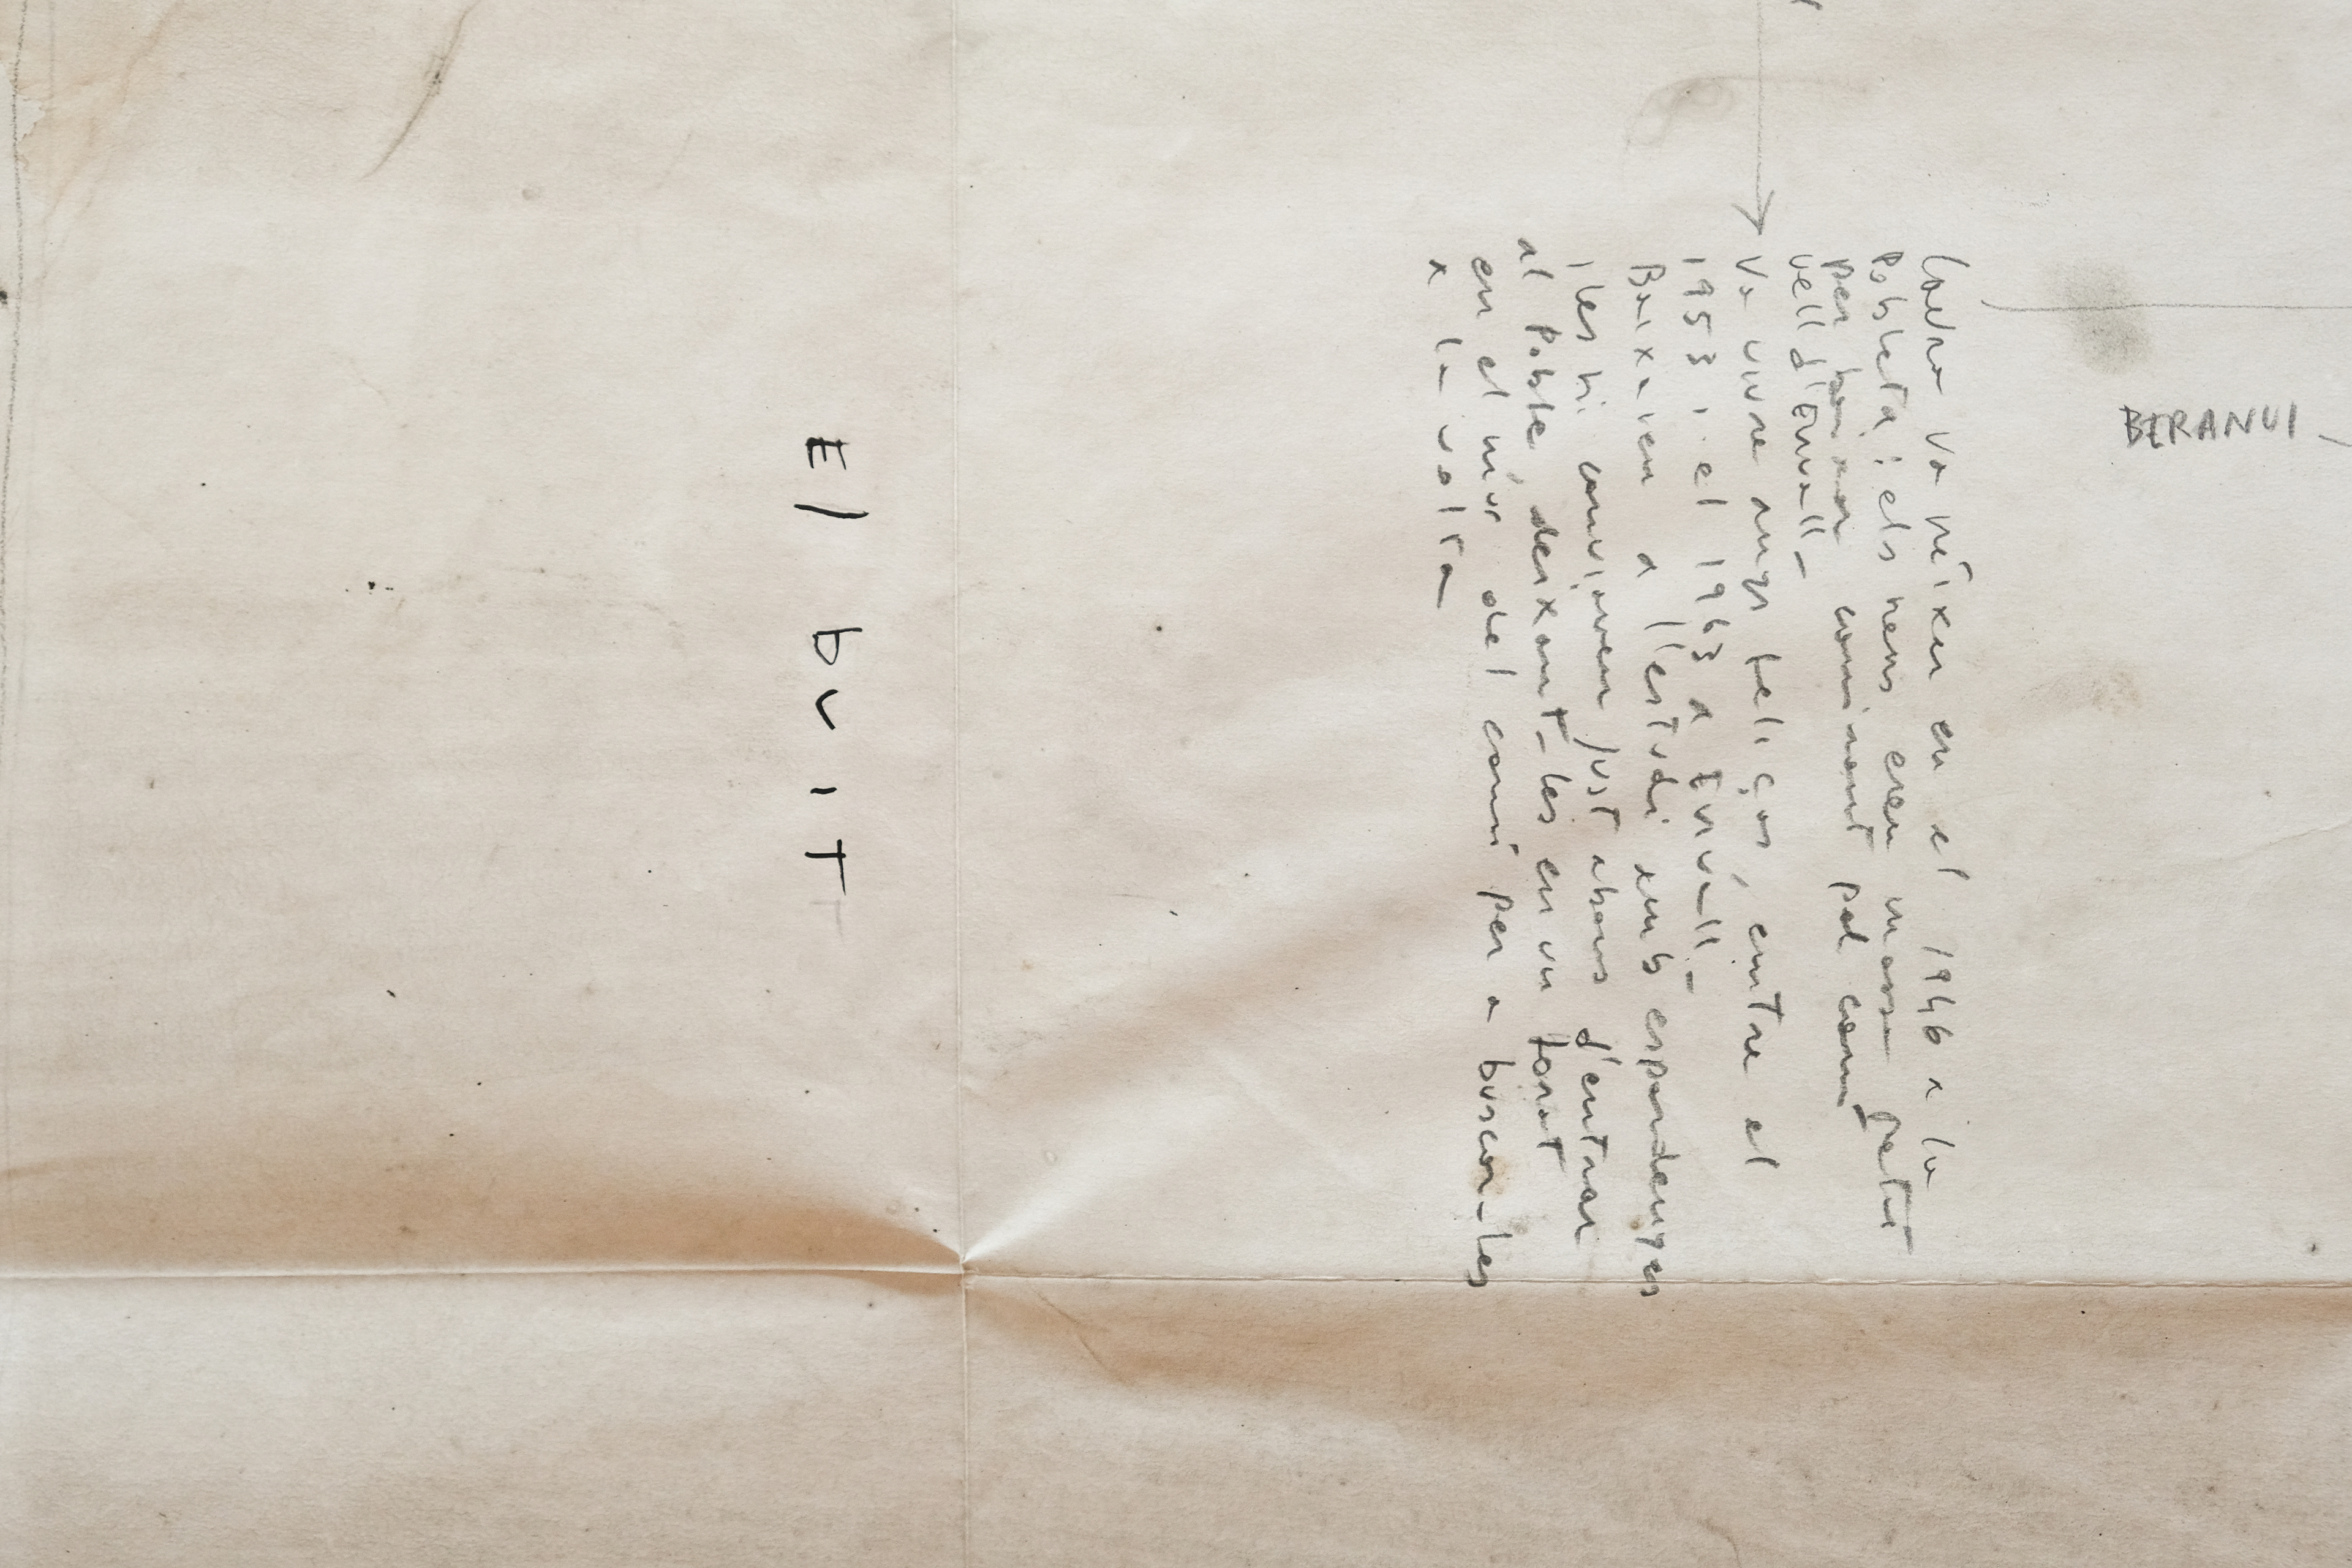 BERANUI
Laura va néixer en el 1946 a la
Pobleta i els nens eren massa petit
per baixar caminant pel camí
vell d'Envall-
Va viure anys feliços, entre el
1953 i el 1963 a Envall-
Baixaven a l'estudi amb espardenyes
i les hi canviaven just abans d'entrar
al Poble, deixant-les en un forat
en el mur del camí per a buscar-les
a la volta
El buit